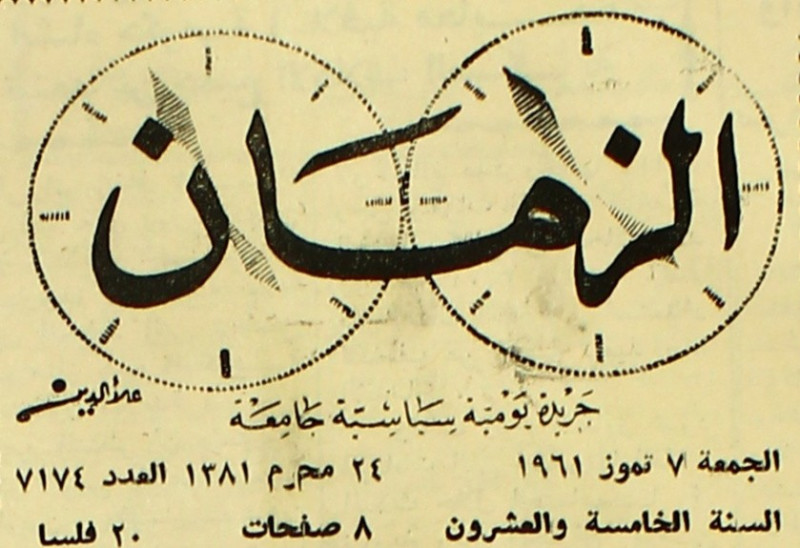 الزمان
علاء الدين
جريدة يومية سياسية جامعة
الجمعة ٧ تموز ١٩٦١ ٢٤ محرم ١٣٨١ العدد ٧١٧٤
السنة الخامسة والعشرون ٨ صفحات ٢٠ فلسا